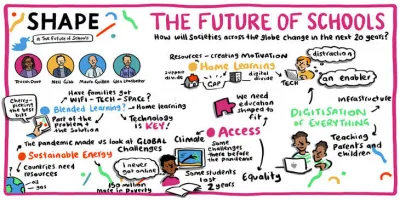 SHAPE
The Future of Schools
THE FUTURE OF SCHOOLS
How will societies across the globe change in the next 20 years?
Resources - creating MOTIVATION
Home Learning
support divide
GAP
digital divide
distraction
TECH
can enabler
Have families got
WIFI - TECH - SPACE?
Cherry-picking the best bits
Blended Learning?
Home learning
Part of the problem & the solution
Technology is KEY!
We need education shaped to fit
Infrastructure
DIGITISATION OF EVERYTHING
Teaching Parents and children
The pandemic made us look at GLOBAL challenges
Climate
Access
Same challenges there before the pandemic
Sustainable Energy
Countries need resources
oil
gas
I never got online
130 million more in Poverty
Some students lost 2 years
Equality